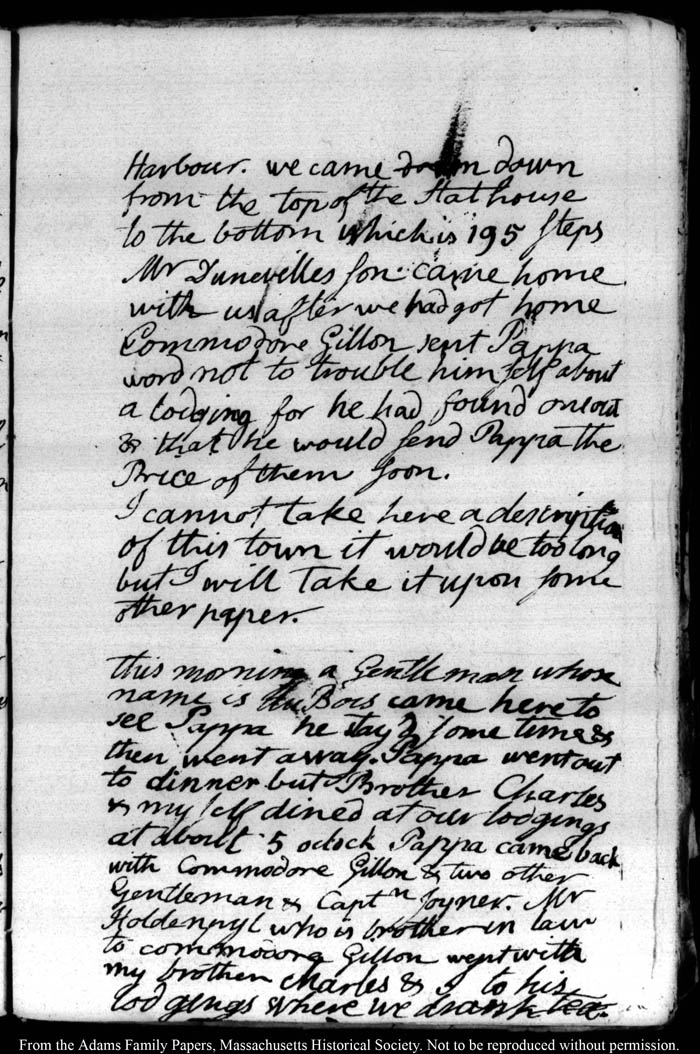 Harbour. we came down
from the top of the Stathouse
to the bottom which is 195 steps
Mr Dunevilles son came home
with us after we had got home
Commodore Gillon sent Pappa
word not to trouble himself about
a lodging for he had found one out
& that he would send Pappa the
Price of them soon.
I cannot take here a description
of this town it would be too long
but I will take it upon some
other paper.
this morning a Gentleman whose
name is Bois came here to
see Pappa he stay'd some time &
then went away. Pappa went out
to dinner but Brother Charles
& my self dined at our lodgings
at about 5 oclock Pappa came back
with Commodore Gillon & two other
Gentleman & Captn Joyner. Mr
Holdenpyl who is brother in law
to commodore Gillon went with
my brother Charles & I to his
lodgings where we drank tea.
From the Adams Family Papers, Massachusetts Historical Society. Not to be reproduced without permission.